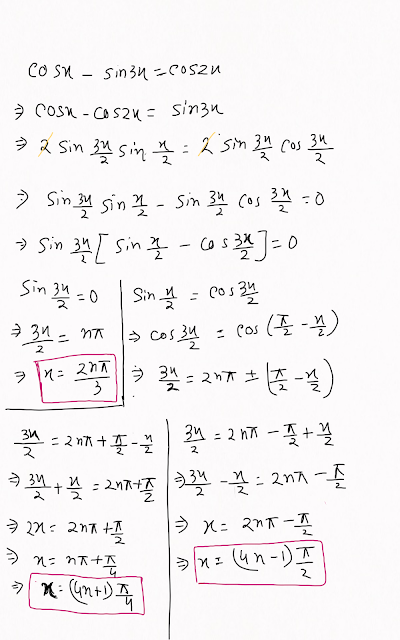 cosx - sin3x = cos2x
⇒ cosx - cos2x = sin3x
⇒ 2 sin 3x/2 sin x/2 = 2 sin 3x/2 cos 3x/2
⇒ sin 3x/2 sin x/2 - sin 3x/2 cos 3x/2 = 0
⇒ sin 3x/2 [ sin x/2 - cos 3x/2 ] = 0
sin 3x/2 = 0
⇒ 3x/2 = nπ
⇒ x = 2nπ/3
sin x/2 = cos 3x/2
⇒ cos 3x/2 = cos (π/2 - x/2)
⇒ 3x/2 = 2nπ ± (π/2 - x/2)
3x/2 = 2nπ + π/2 - x/2
⇒ 3x/2 + x/2 = 2nπ + π/2
⇒ 2x = 2nπ + π/2
⇒ x = nπ + π/4
⇒ x = (4n+1) π/4
3x/2 = 2nπ - π/2 + x/2
⇒ 3x/2 - x/2 = 2nπ - π/2
⇒ x = 2nπ - π/2
⇒ x = (4n-1) π/2